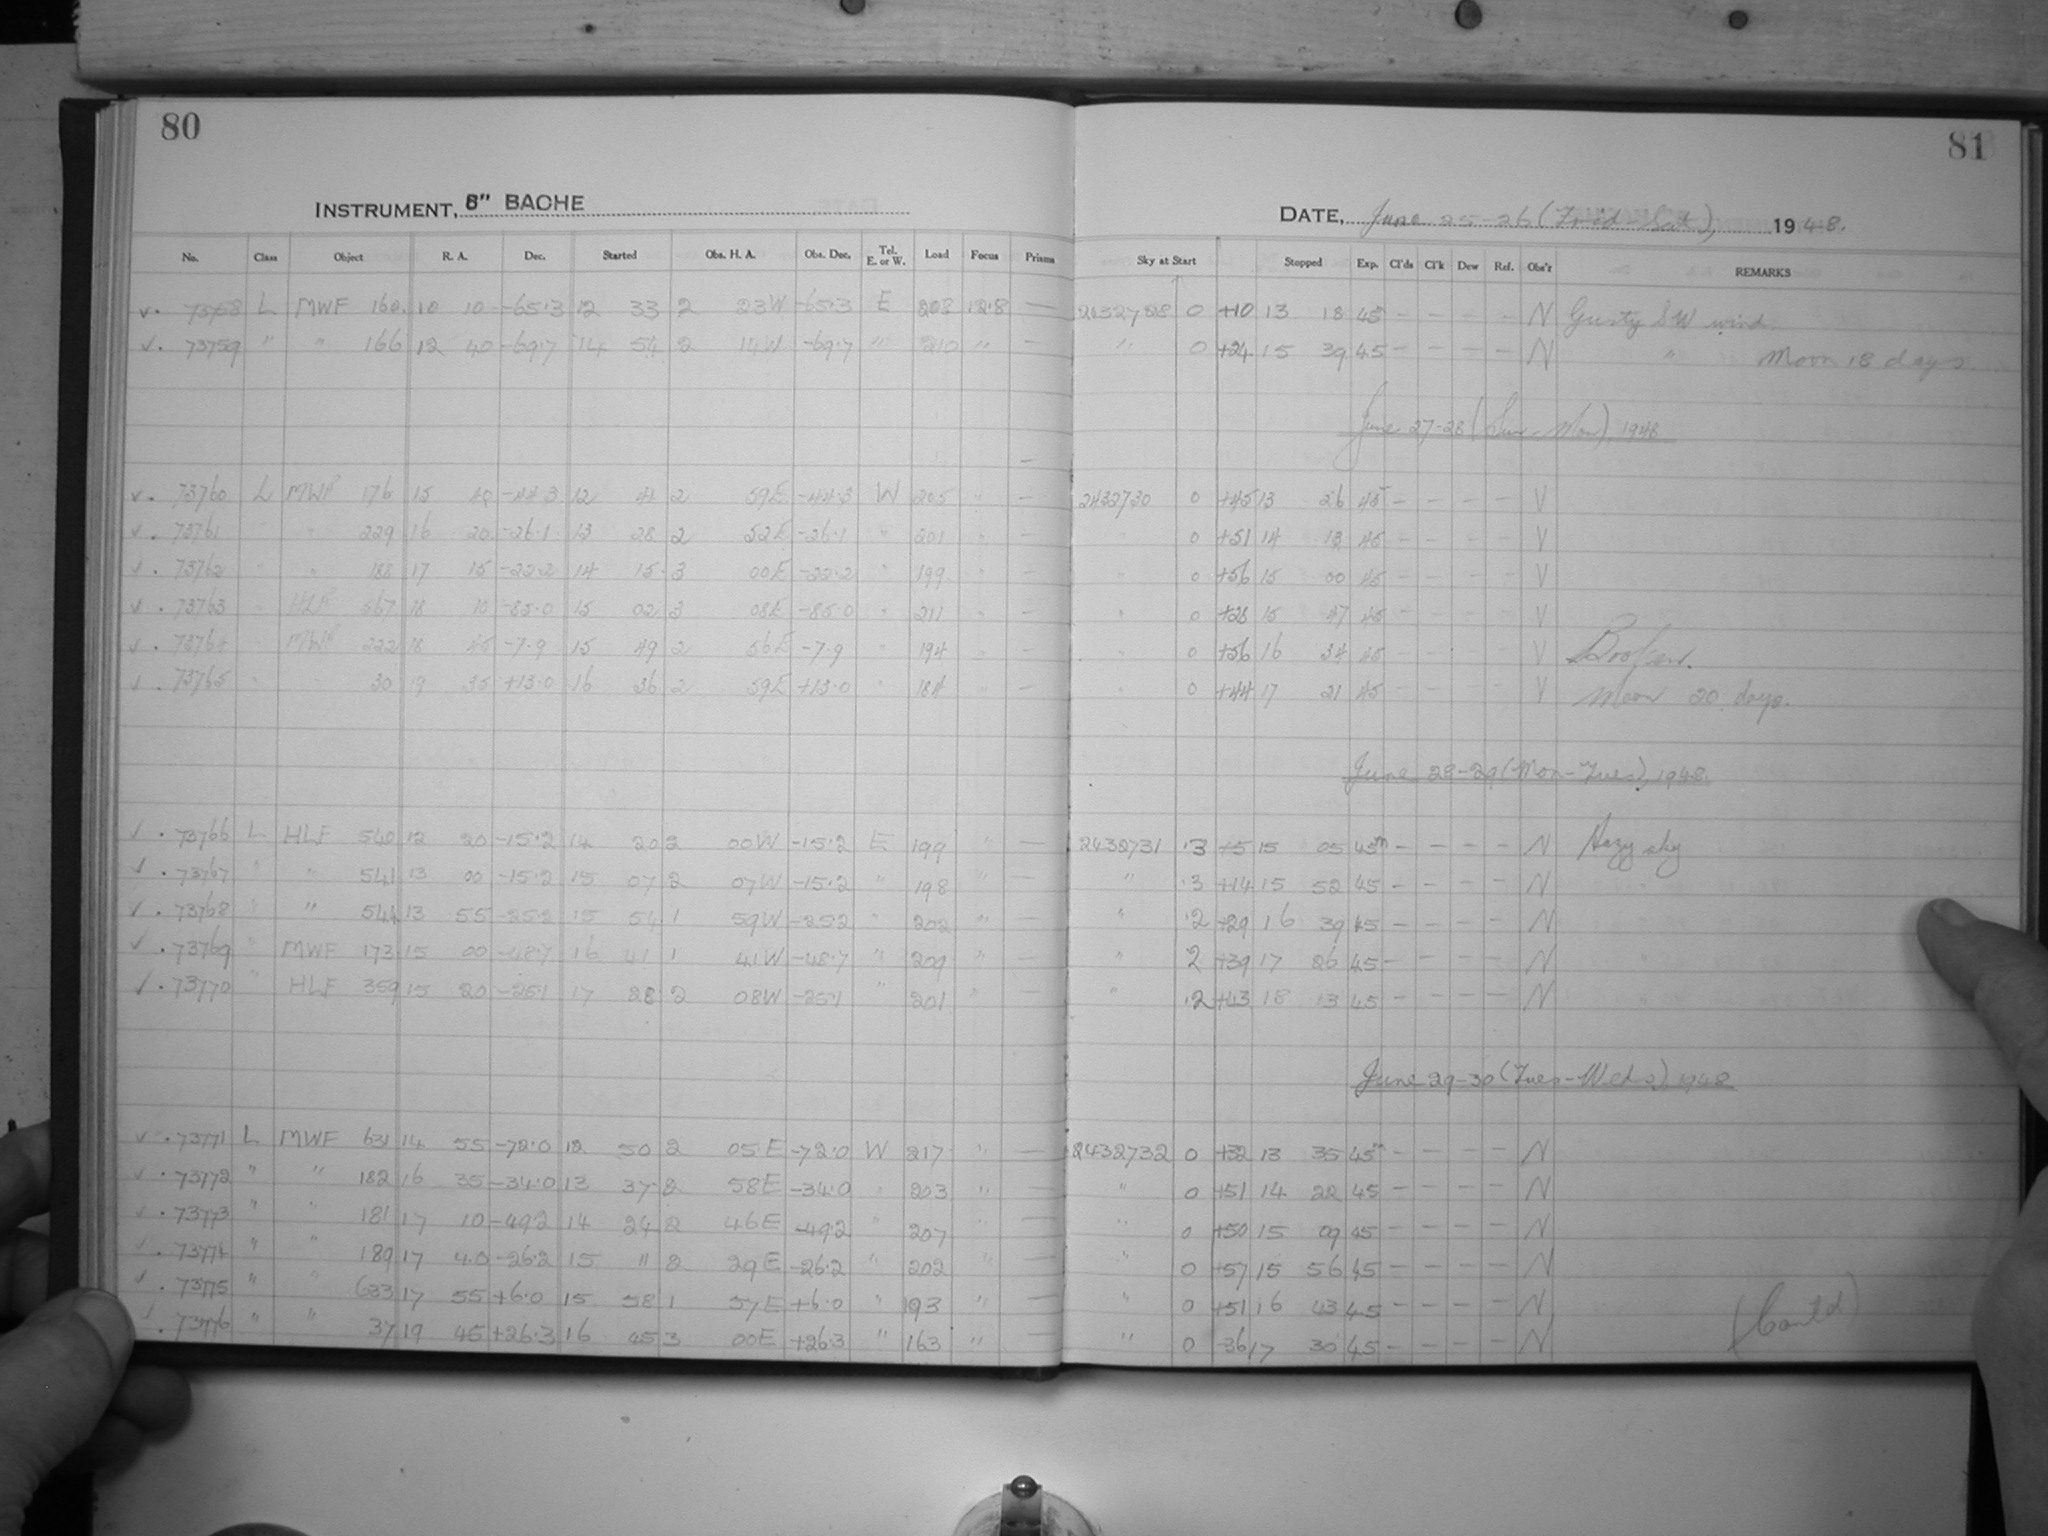 80
81
INSTRUMENT, 8" BACHE
DATE, June 25-26 (Frid-Sat), 1948.
No. Class Object R. A. Dec. Started Obs. H. A. Obs. Dec. Tel. E. or W. Load Focus Prisms Sky at Start Stopped Exp. Cl'ds Cl'k Dew Ref. Obs'r REMARKS
✓. 73758 L MWF 160 10 10 -65.3 12 33 2 23W -65.3 E 208 12.8 — 2432728 0 +10 13 18 45 - - - - N Gusty SW wind
✓. 73759 " " 166 12 40 -69.7 14 54 2 14W -69.7 " 210 " — " 0 +24 15 39 45 - - - - N " Moon 18 days.
June 27-28 (Sun-Mon), 1948
✓. 73760 L MWF 176 15 40 -44.3 12 41 2 59E -44.3 W 205 " - 2432730 0 +45 13 26 45 - - - - V
✓. 73761 " 229 16 20 -26.1 13 28 2 52E -26.1 " 201 " - " 0 +51 14 13 45 - - - - V
✓. 73762 " " 188 17 15 -22.2 14 15 3 00E -22.2 " 199 " - " 0 +56 15 00 45 - - - - V
✓. 73763 " HLF 567 18 10 -85.0 15 02 3 08E -85.0 " 211 " - " 0 +28 15 47 45 - - - - V
✓. 73764 " MWF 222 18 45 -7.9 15 49 2 56E -7.9 " 194 " - " 0 +56 16 34 45 - - - - V
✓. 73765 " 30 19 35 +13.0 16 36 2 59E +13.0 " 184 " - " 0 +44 17 21 45 - - - - V Moon 20 days.
June 28-29 (Mon-Tues), 1948.
✓. 73766 L HLF 540 12 20 -15.2 14 20 2 00W -15.2 E 199 " — 2432731 .3 +5 15 05 45m - - - - N Hazy sky
✓. 73767 " " 541 13 00 -15.2 15 07 2 07W -15.2 " 198 " — " .3 +14 15 52 45 - - - - N
✓. 73768 " " 544 13 55 -25.2 15 54 1 59W -25.2 " 202 " — " .2 +29 16 39 45 - - - - N
✓. 73769 " MWF 173 15 00 -48.7 16 41 1 41W -48.7 " 209 " — " 2 +39 17 26 45 - - - - N
✓. 73770 " HLF 359 15 20 -25.1 17 28 2 08W -25.1 " 201 " — " .2 +43 18 13 45 - - - - N
June 29-30 (Tues-Weds), 1948
✓. 73771 L MWF 631 14 55 -72.0 12 50 2 05E -72.0 W 217 " — 2432732 0 +32 13 35 45m - - - - N
✓. 73772 " " 182 16 35 -34.0 13 37 2 58E -34.0 " 203 " — " 0 +51 14 22 45 - - - - N
✓. 73773 " " 181 17 10 -49.2 14 24 2 46E -49.2 " 207 " — " 0 +50 15 09 45 - - - - N
✓. 73774 " " 189 17 40 -26.2 15 11 2 29E -26.2 " 202 " — " 0 +57 15 56 45 - - - - N
✓. 73775 " " 633 17 55 +6.0 15 58 1 57E +6.0 " 193 " — " 0 +51 16 43 45 - - - - N
✓. 73776 " " 37 19 45 +26.3 16 45 3 00E +26.3 " 163 " — " 0 -36 17 30 45 - - - - N
(Cont'd)